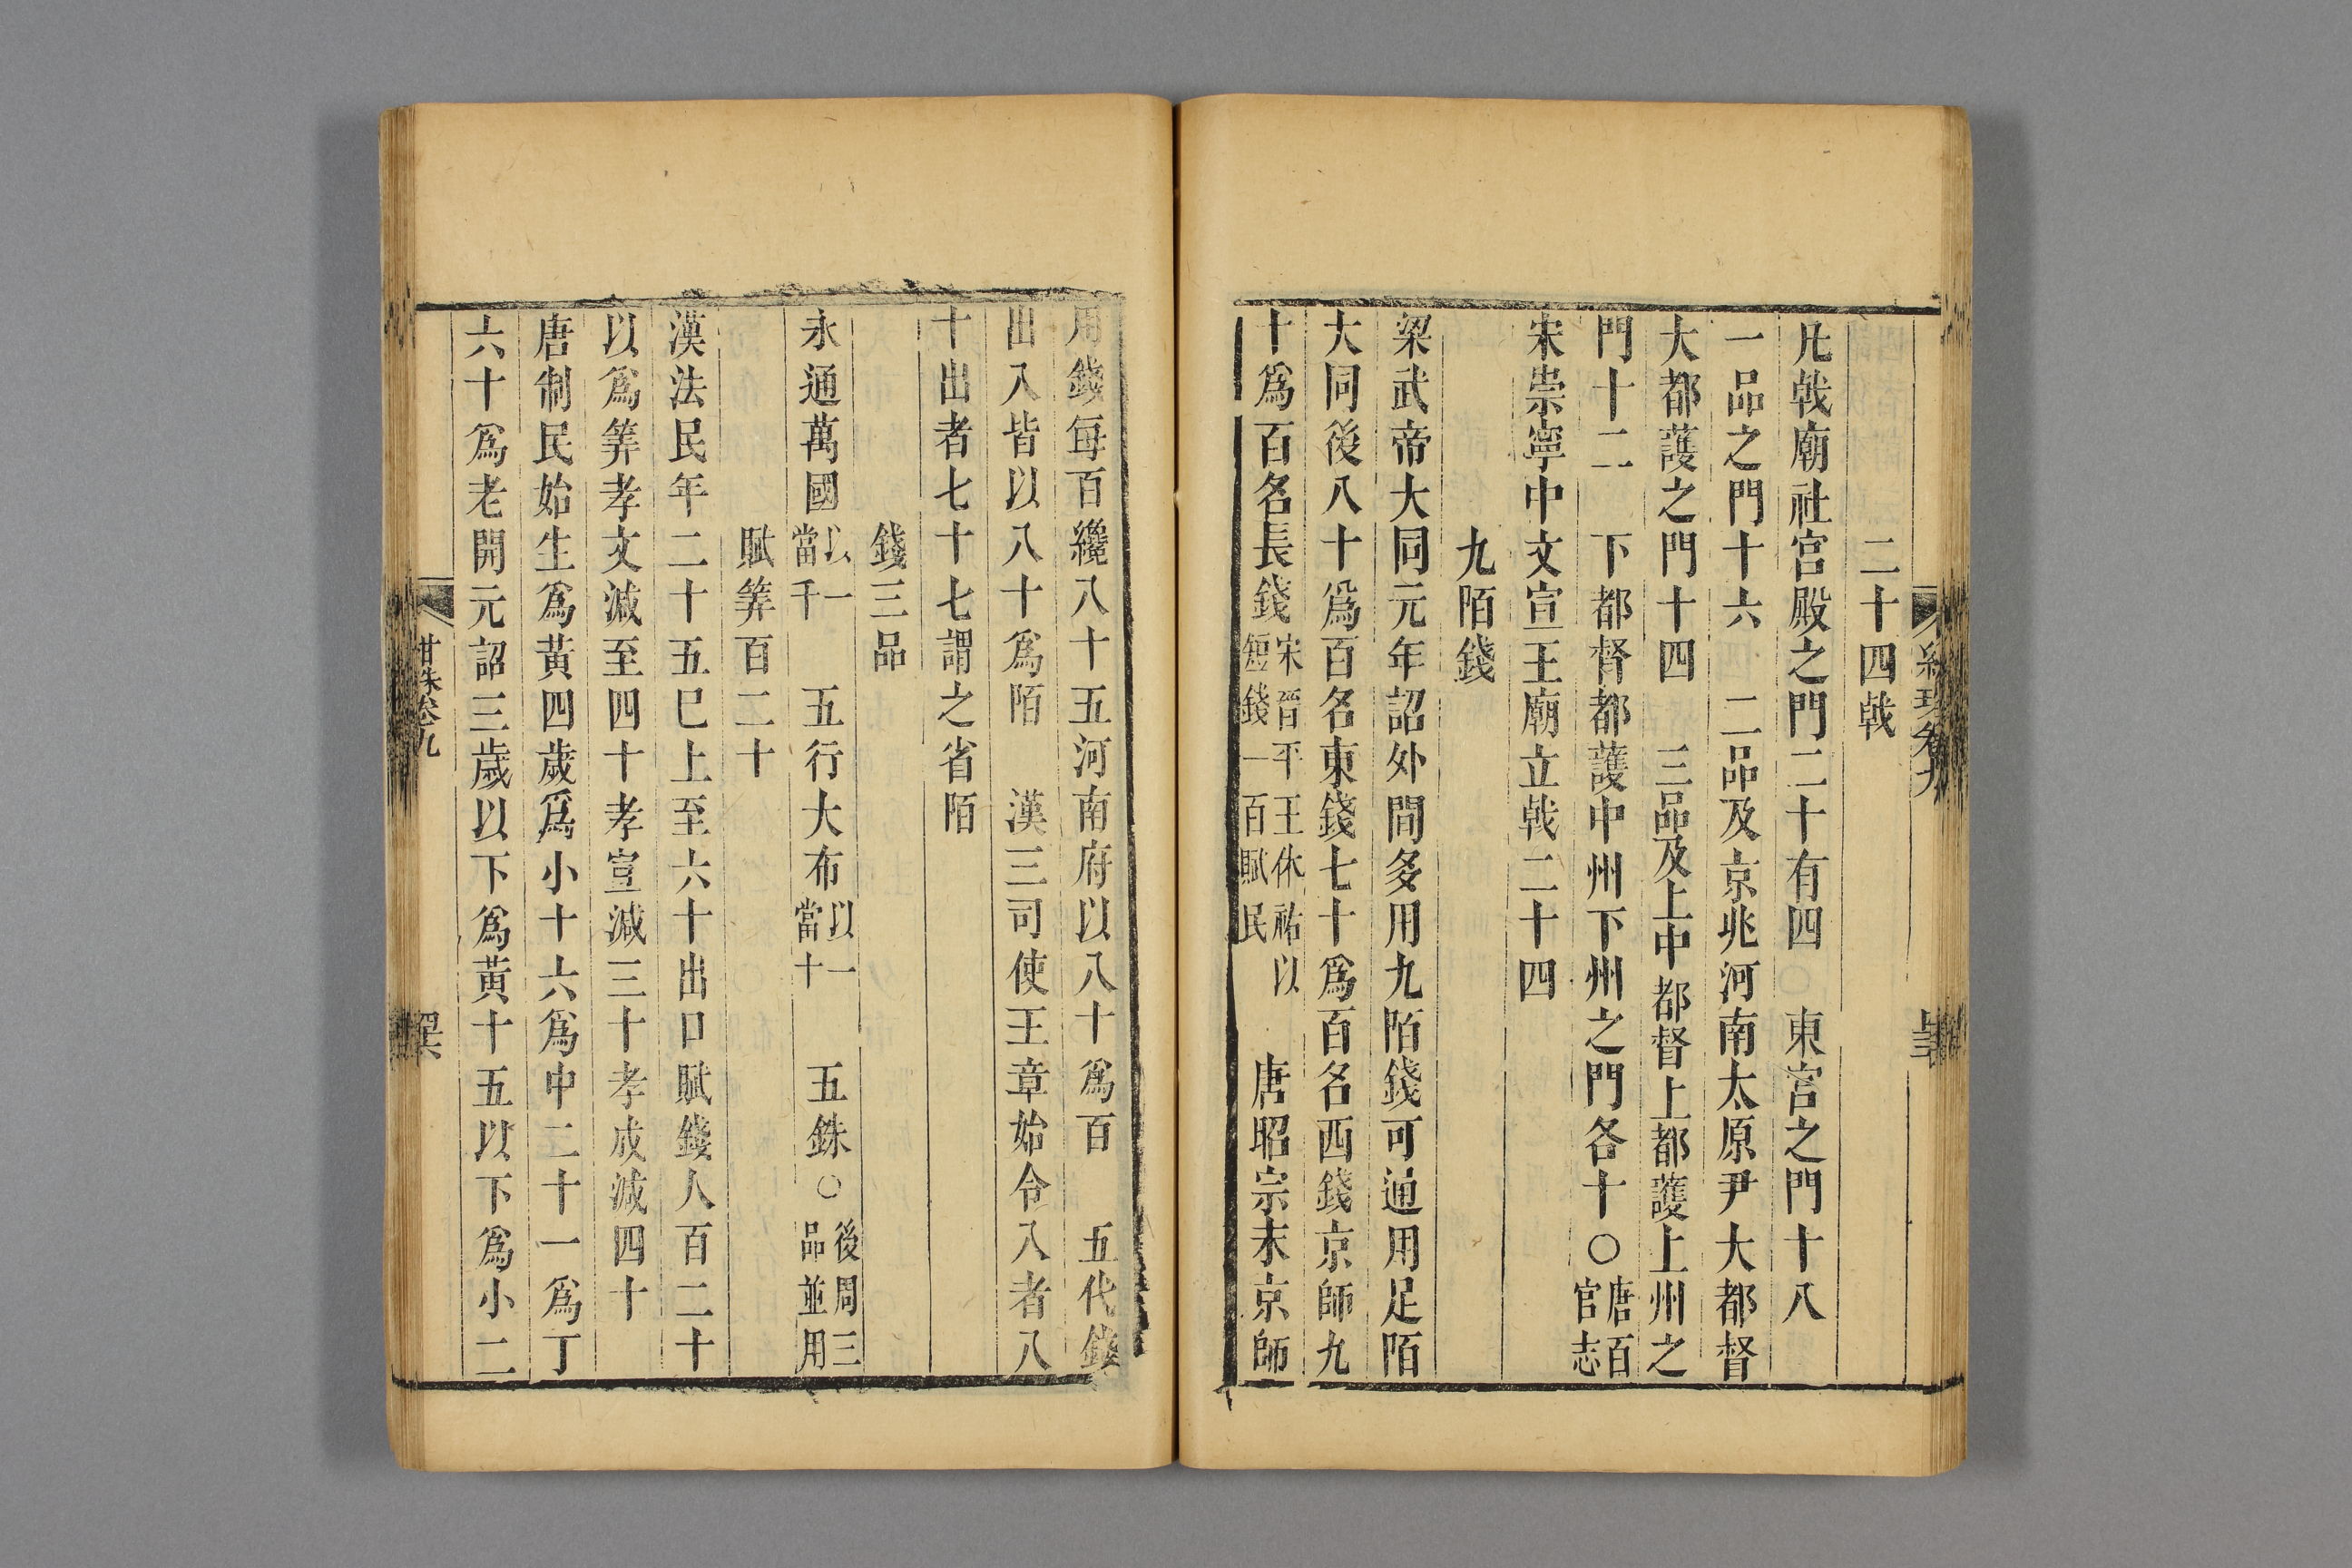 二十四戟
凡戟廟社宮殿之門二十有四○東宮之門十八
一品之門十六　二品及京兆河南太原尹大都督
大都護之門十四　三品及上中都督上都護上州之
門十二　下都督都護中州下州之門各十○唐百官志
宋崇寧中文宣王廟立戟二十四
九陌錢
梁武帝大同元年詔外間多用九陌錢可通用足陌
大同後八十爲百名東錢七十爲百名西錢京師九
十爲百名長錢宋晉平王休祐以短錢一百賦民　唐昭宗末京師
用錢每百纔八十五河南府以八十爲百　五代錢
出入皆以八十爲陌　漢三司使王章始令入者八
十出者七十七謂之省陌
錢三品
永通萬國以一當千　五行大布以一當十　五銖○後周三品並用
賦筭百二十
漢法民年二十五巳上至六十出口賦錢人百二十
以爲筭孝文減至四十孝宣減三十孝成減四十
唐制民始生爲黃四歲爲小十六爲中二十一爲丁
六十爲老開元詔三歲以下爲黃十五以下爲小二
甘珠卷九